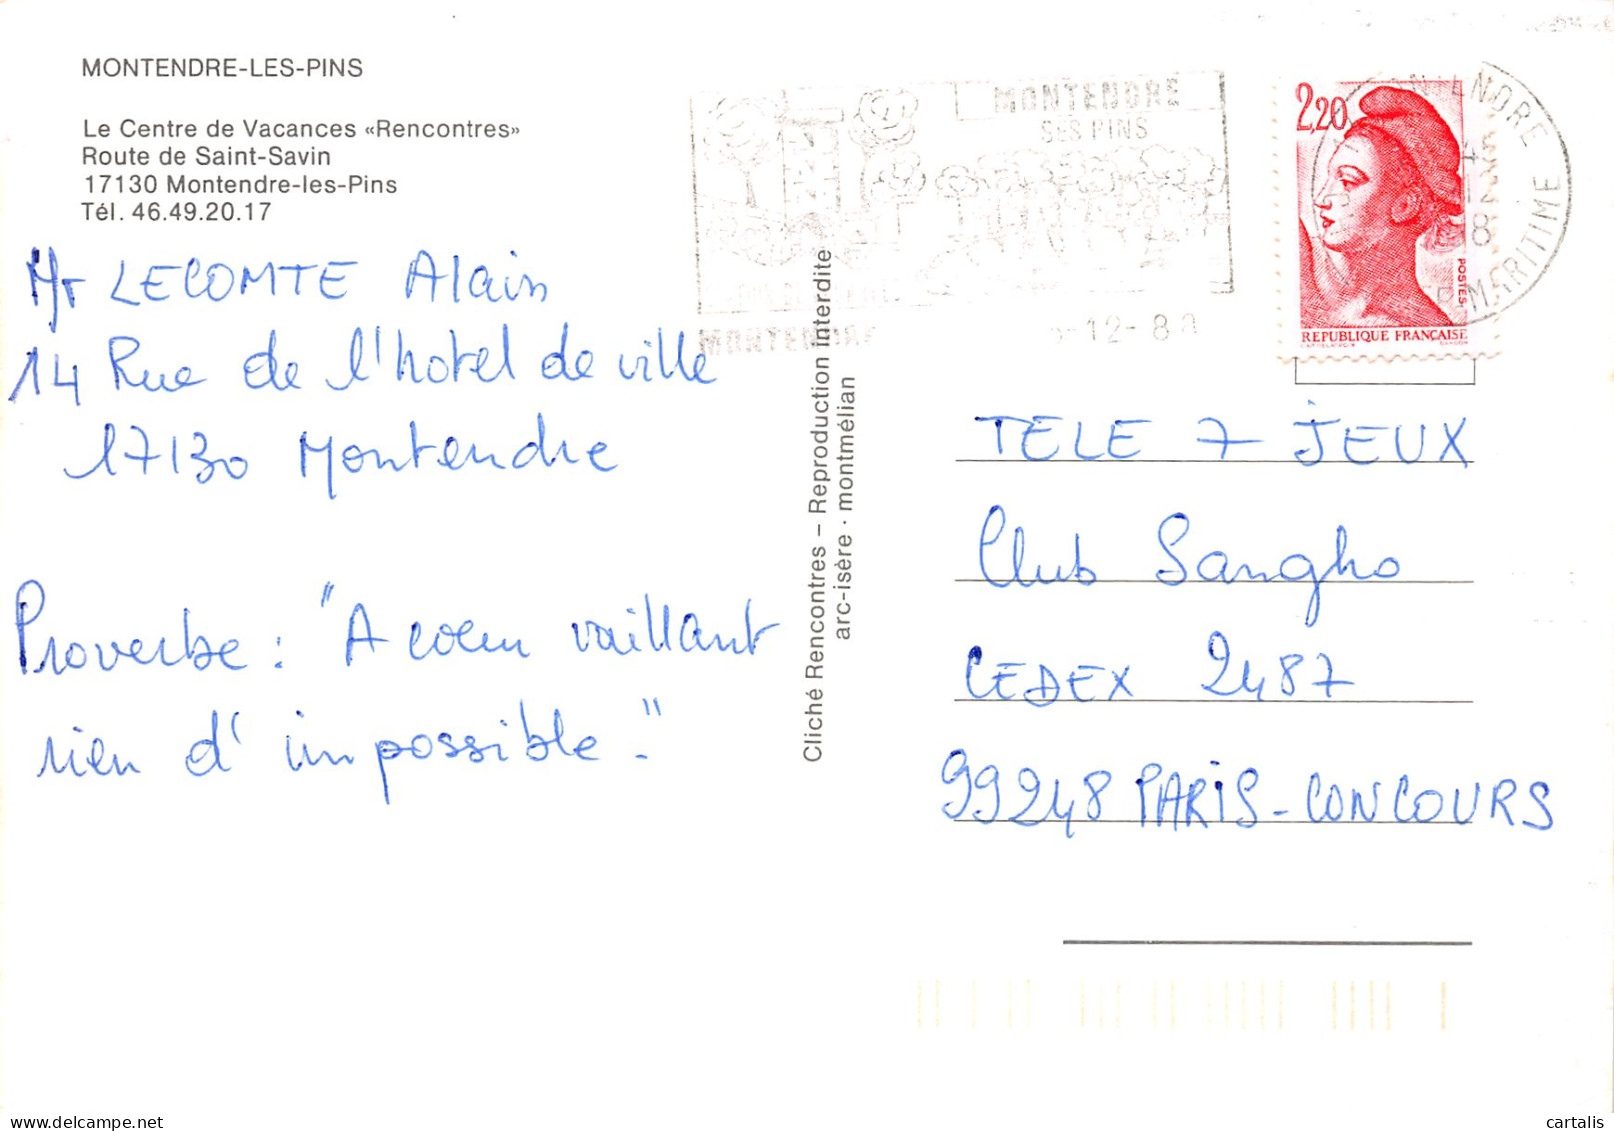 MONTENDRE-LES-PINS
Le Centre de Vacances «Rencontres»
Route de Saint-Savin
17130 Montendre-les-Pins
Tél. 46.49.20.17
Mr LECOMTE Alain
14 Rue de l'hotel de ville
17130 Montendre
Proverbe : "A coeur vaillant
rien d'impossible."
Cliché Rencontres – Reproduction interdite
arc-isère · montmélian
MONTENDRE
SES PINS
MONTENDRE
-12-8
2,20
POSTES
REPUBLIQUE FRANÇAISE
MARITIME
TELE 7 JEUX
Club Sangho
CEDEX 2487
99248 PARIS-CONCOURS
delcampe.net
cartalis